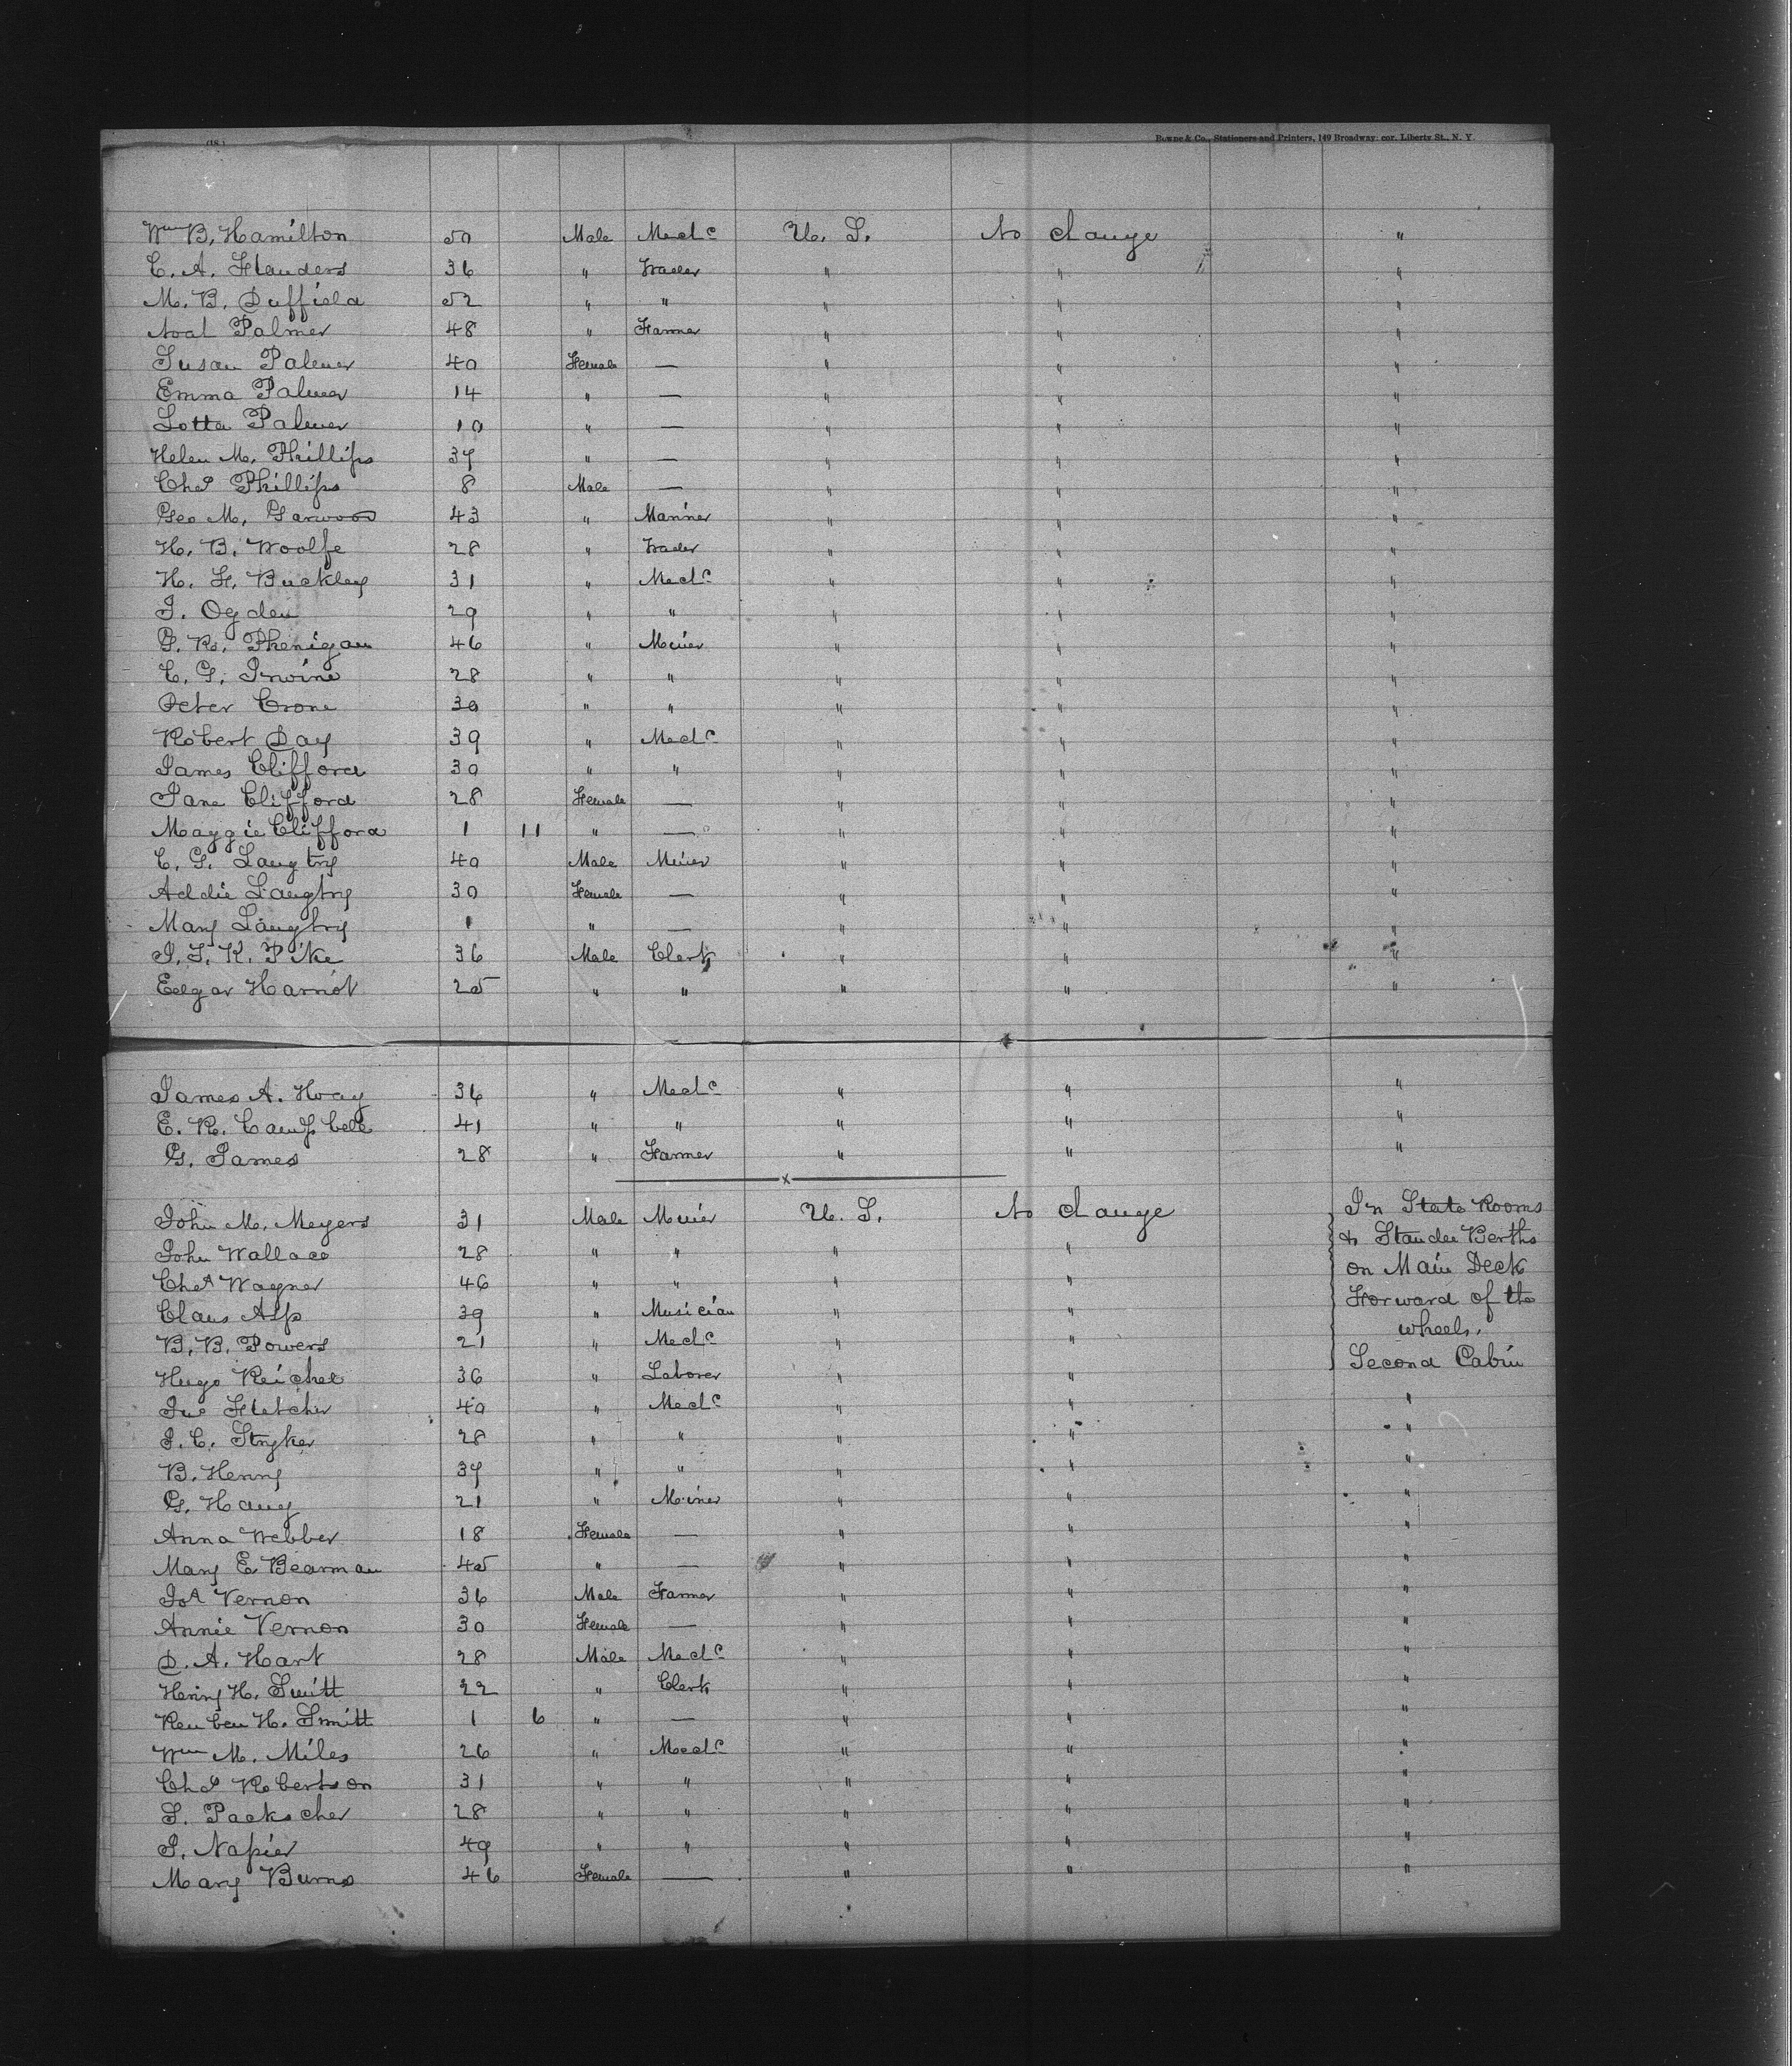 (18.)
Bowne & Co., Stationers and Printers, 149 Broadway, cor. Liberty St., N. Y.
Wm B. Hamilton 50 Male Mechc U. S. No change "
C. A. Flanders 36 " Trader " " "
M. B. Duffield 52 " " " " "
Noal Palmer 48 " Farmer " " "
Susan Palmer 40 Female — " " "
Emma Palmer 14 " — " " "
Lotta Palmer 10 " — " " "
Helen M. Phillips 37 " — " " "
Chas Phillips 8 Male — " " "
Geo M. Garwood 43 " Mariner " " "
H. B. Woolfe 28 " Trader " " "
H. F. Buckley 31 " Mechc " " "
J. Ogden 29 " " " " "
G. R. Phenigan 46 " Miner " " "
C. G. Irwine 28 " " " " "
Peter Crone 30 " " " " "
Robert Day 39 " Mechc " " "
James Clifford 30 " " " " "
Jane Clifford 28 Female — " " "
Maggie Clifford 1 11 " — " " "
C. G. Langtry 40 Male Miner " " "
Addie Langtry 30 Female — " " "
Mary Langtry 1 " — " " "
J. S. K. Pike 36 Male Clerk " " "
Edgar Harriot 25 " " " " "
James A. Hoag 36 " Mechc " " "
E. R. Campbell 41 " " " " "
G. James 28 " Farmer " " "
x
John M. Meyers 31 Male Miner U. S. No change In State Rooms
John Wallace 28 " " " " & Standee Berths
Chas Wagner 46 " " " " on Main Deck
Claus Alp 39 " Musician " " Forward of the
B. B. Powers 21 " Mechc " " wheels.
Hugo Reichel 36 " Laborer " " Second Cabin
Jno Fletcher 40 " Mechc " " "
J. C. Stryker 28 " " " " "
B. Henry 37 " " " " "
G. Haug 21 " Miner " " "
Anna Webber 18 Female — " " "
Mary E. Bearman 45 " — " " "
Jos Vernon 36 Male Farmer " " "
Annie Vernon 30 Female — " " "
D. A. Hart 28 Male Mechc " " "
Henry H. Smitt 22 " Clerk " " "
Reuben H. Smitt 1 6 " — " " "
Wm M. Miles 26 " Mechc " " "
Chas Robertson 31 " " " " "
S. Packscher 28 " " " " "
J. Napier 49 " " " " "
Mary Burns 46 Female — " " "